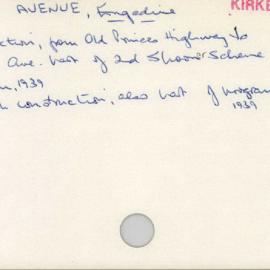 AVENUE, Engadine
KIRKE
ction, from Old Princes Highway to
Ave. Part of 2nd Shoosr Scheme
1939
construction, also part of program
1939